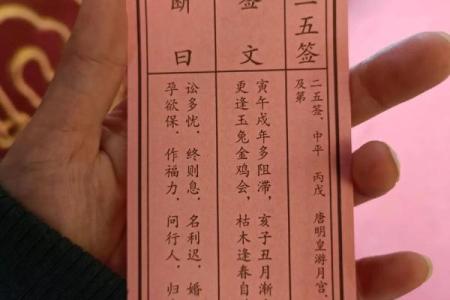 二五签
二五签、中平 丙戌 唐明皇游月宫、
及第
签文
寅午戌年多阻滞，亥子丑月渐
更逢玉兔金鸡会，枯木逢春自
断曰
讼多忧、终则息、名利迟、婚
孕欲保、作福力、问行人、归